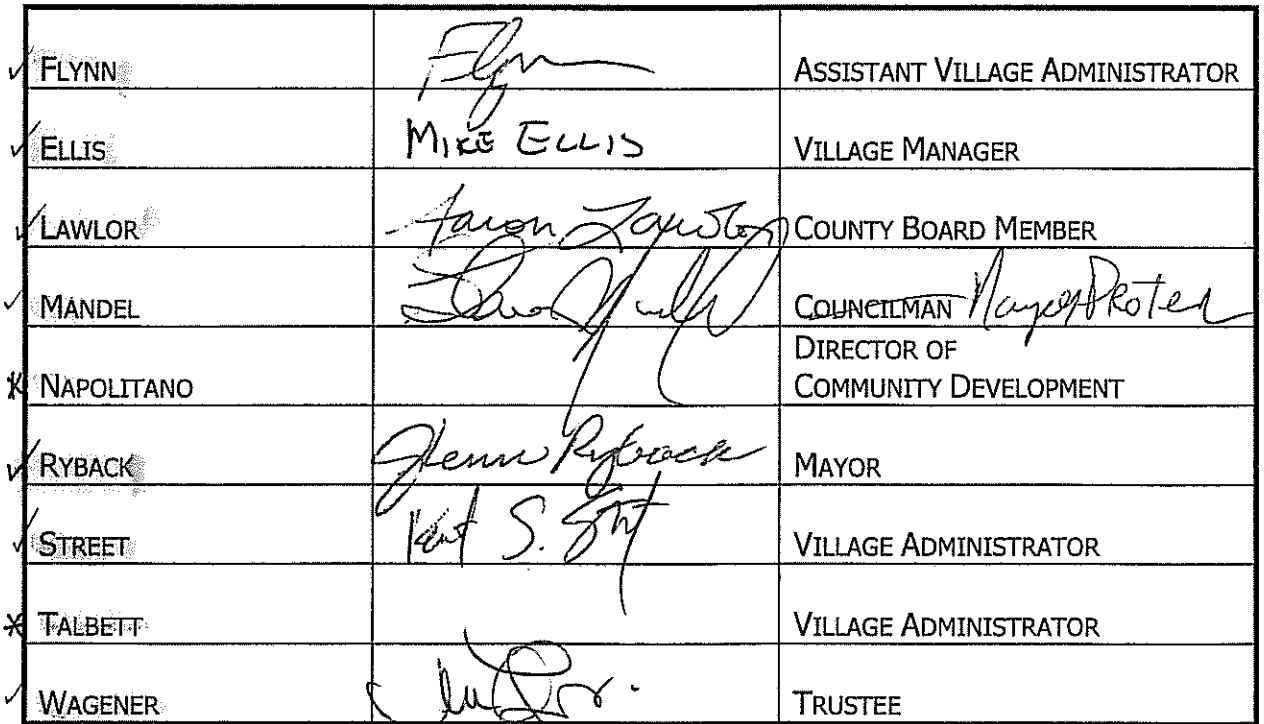 ✓ FLYNN Flynn ASSISTANT VILLAGE ADMINISTRATOR
✓ ELLIS MIKE ELLIS VILLAGE MANAGER
✓ LAWLOR Aaron Lawlor COUNTY BOARD MEMBER
✓ MANDEL COUNCILMAN Mayor PROTEM
DIRECTOR OF
* NAPOLITANO COMMUNITY DEVELOPMENT
✓ RYBACK Glenn Ryback MAYOR
✓ STREET Kent S. Street VILLAGE ADMINISTRATOR
* TALBETT VILLAGE ADMINISTRATOR
✓ WAGENER TRUSTEE